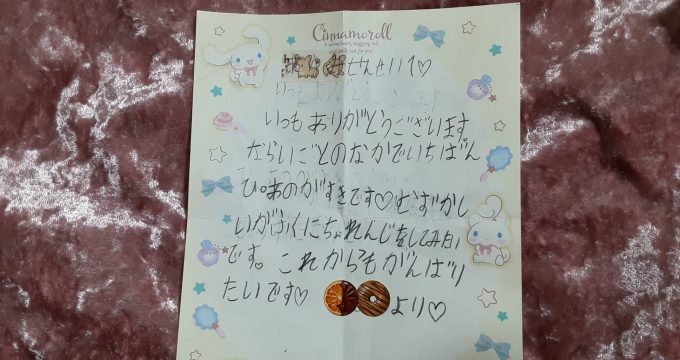 Cinnamoroll
せんせいへ♡
いつもありがとうございます
ならいごとのなかでいちばん
ぴあのがすきです♡むずかし
いがっきにちゃれんじをしてみたい
です。これからもがんばり
たいです♡
より♡